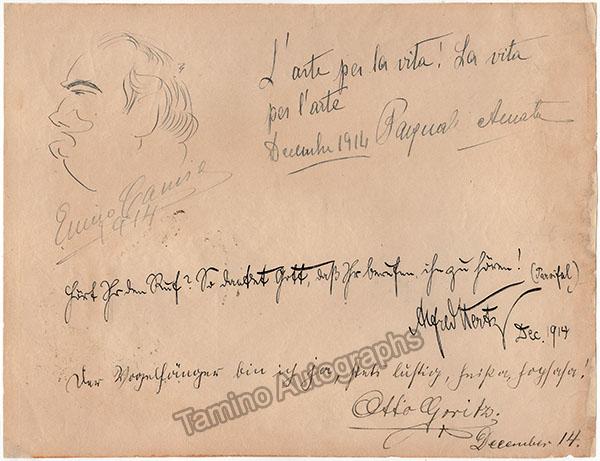 L'arte per la vita! La vita
per l'arte
Decembre 1914 Pasquale Amato
Enrico Caruso
1914
Hört Ihr den Ruf? So danket Gott, daß Ihr berufen ihn zu hören! (Parsifal)
Alfred Hertz
Dec. 1914
Der Vogelfänger bin ich ja, stets lustig, heißa, hopsasa!
Otto Goritz.
December 14.
Tamino Autographs